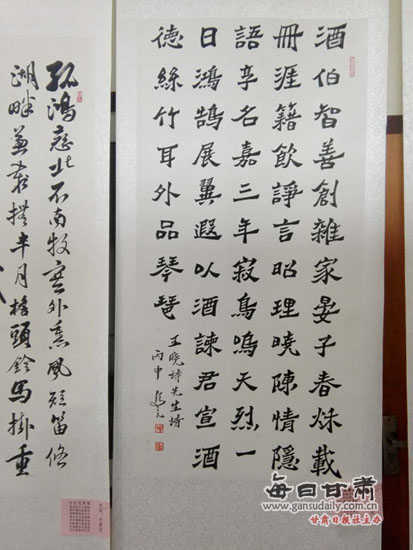 酒伯智善創雜家晏子春秌載
冊涯籍飲諍言昭理曉陳情隱
語享名嘉三年寂鳥鳴天烈一
日鴻鵠展翼遐以酒諫君宣酒
德絲竹耳外品琴琶
王曉詩先生诗
丙申
孤鴻恋北不南牧塞外熏風短笛
湖畔半月頭鈴馬掛重
每日甘肃
www.gansudaily.com.cn
甘肃日报社主办